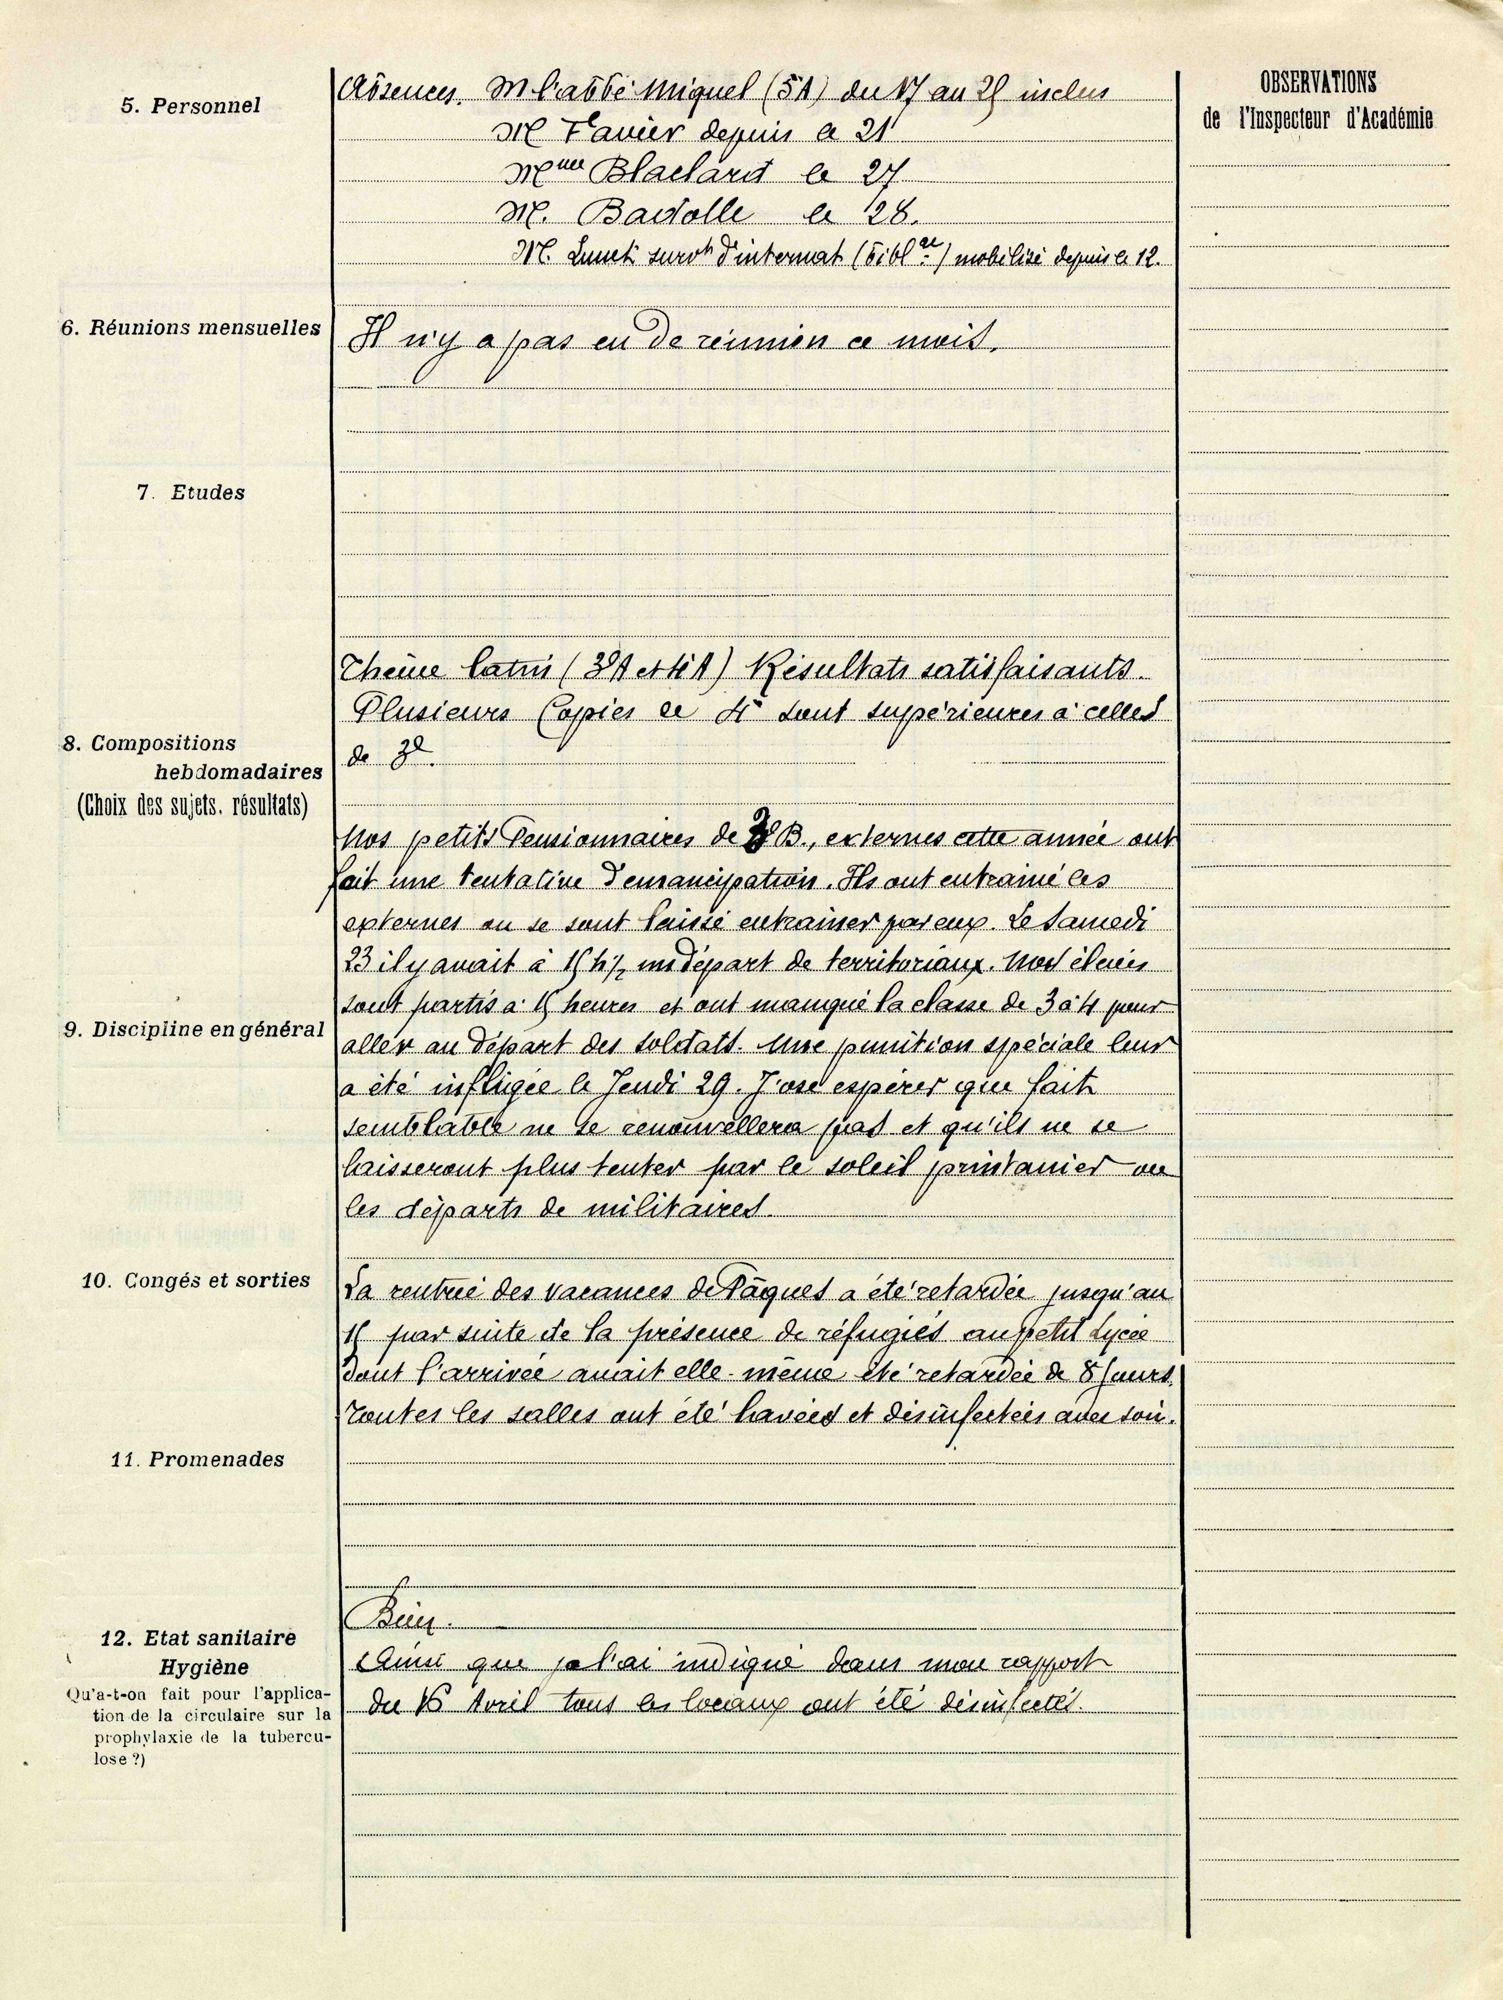 OBSERVATIONS
de l'Inspecteur d'Académie
5. Personnel
Absences. M l'abbé Miquel (5A) du 17 au 25 inclus
M Favier depuis le 21
Mme Blachard le 27
M. Badolle le 28.
M. Lunet survt d'internat (bibl re) mobilisé depuis le 12.
6. Réunions mensuelles
Il n'y a pas eu de réunion ce mois.
7. Etudes
8. Compositions
hebdomadaires
(Choix des sujets, résultats)
Thème latin (3e A et 4e A) Résultats satisfaisants.
Plusieurs Copies de 4e sont supérieures à celles
de 3e.
9. Discipline en général
Nos petits Pensionnaires de B., externes cette année ont
fait une tentative d'émancipation. Ils ont entrainé les
externes ou se sont laissé entrainer par eux. Le Samedi
23 il y avait à 15 h ½ un départ de territoriaux. Nos élèves
sont partis à 15 heures et ont manqué la classe de 3 à 4 pour
aller au départ des soldats. Une punition spéciale leur
a été infligée le Jeudi 29. J'ose espérer que fait
semblable ne se renouvellera pas et qu'ils ne se
laisseront plus tenter par le soleil printanier ou
les départs de militaires.
10. Congés et sorties
La rentrée des vacances de Pâques a été retardée jusqu'au
15 par suite de la présence de réfugiés au petit Lycée
dont l'arrivée avait elle-même été retardée de 8 jours.
Toutes les salles ont été lavées et désinfectées avec soin.
11. Promenades
12. Etat sanitaire
Hygiène
Qu'a-t-on fait pour l'applica-
tion de la circulaire sur la
prophylaxie de la tubercu-
lose ?)
Bien.
Ainsi que je l'ai indiqué dans mon rapport
du 16 Avril tous les locaux ont été désinfectés.